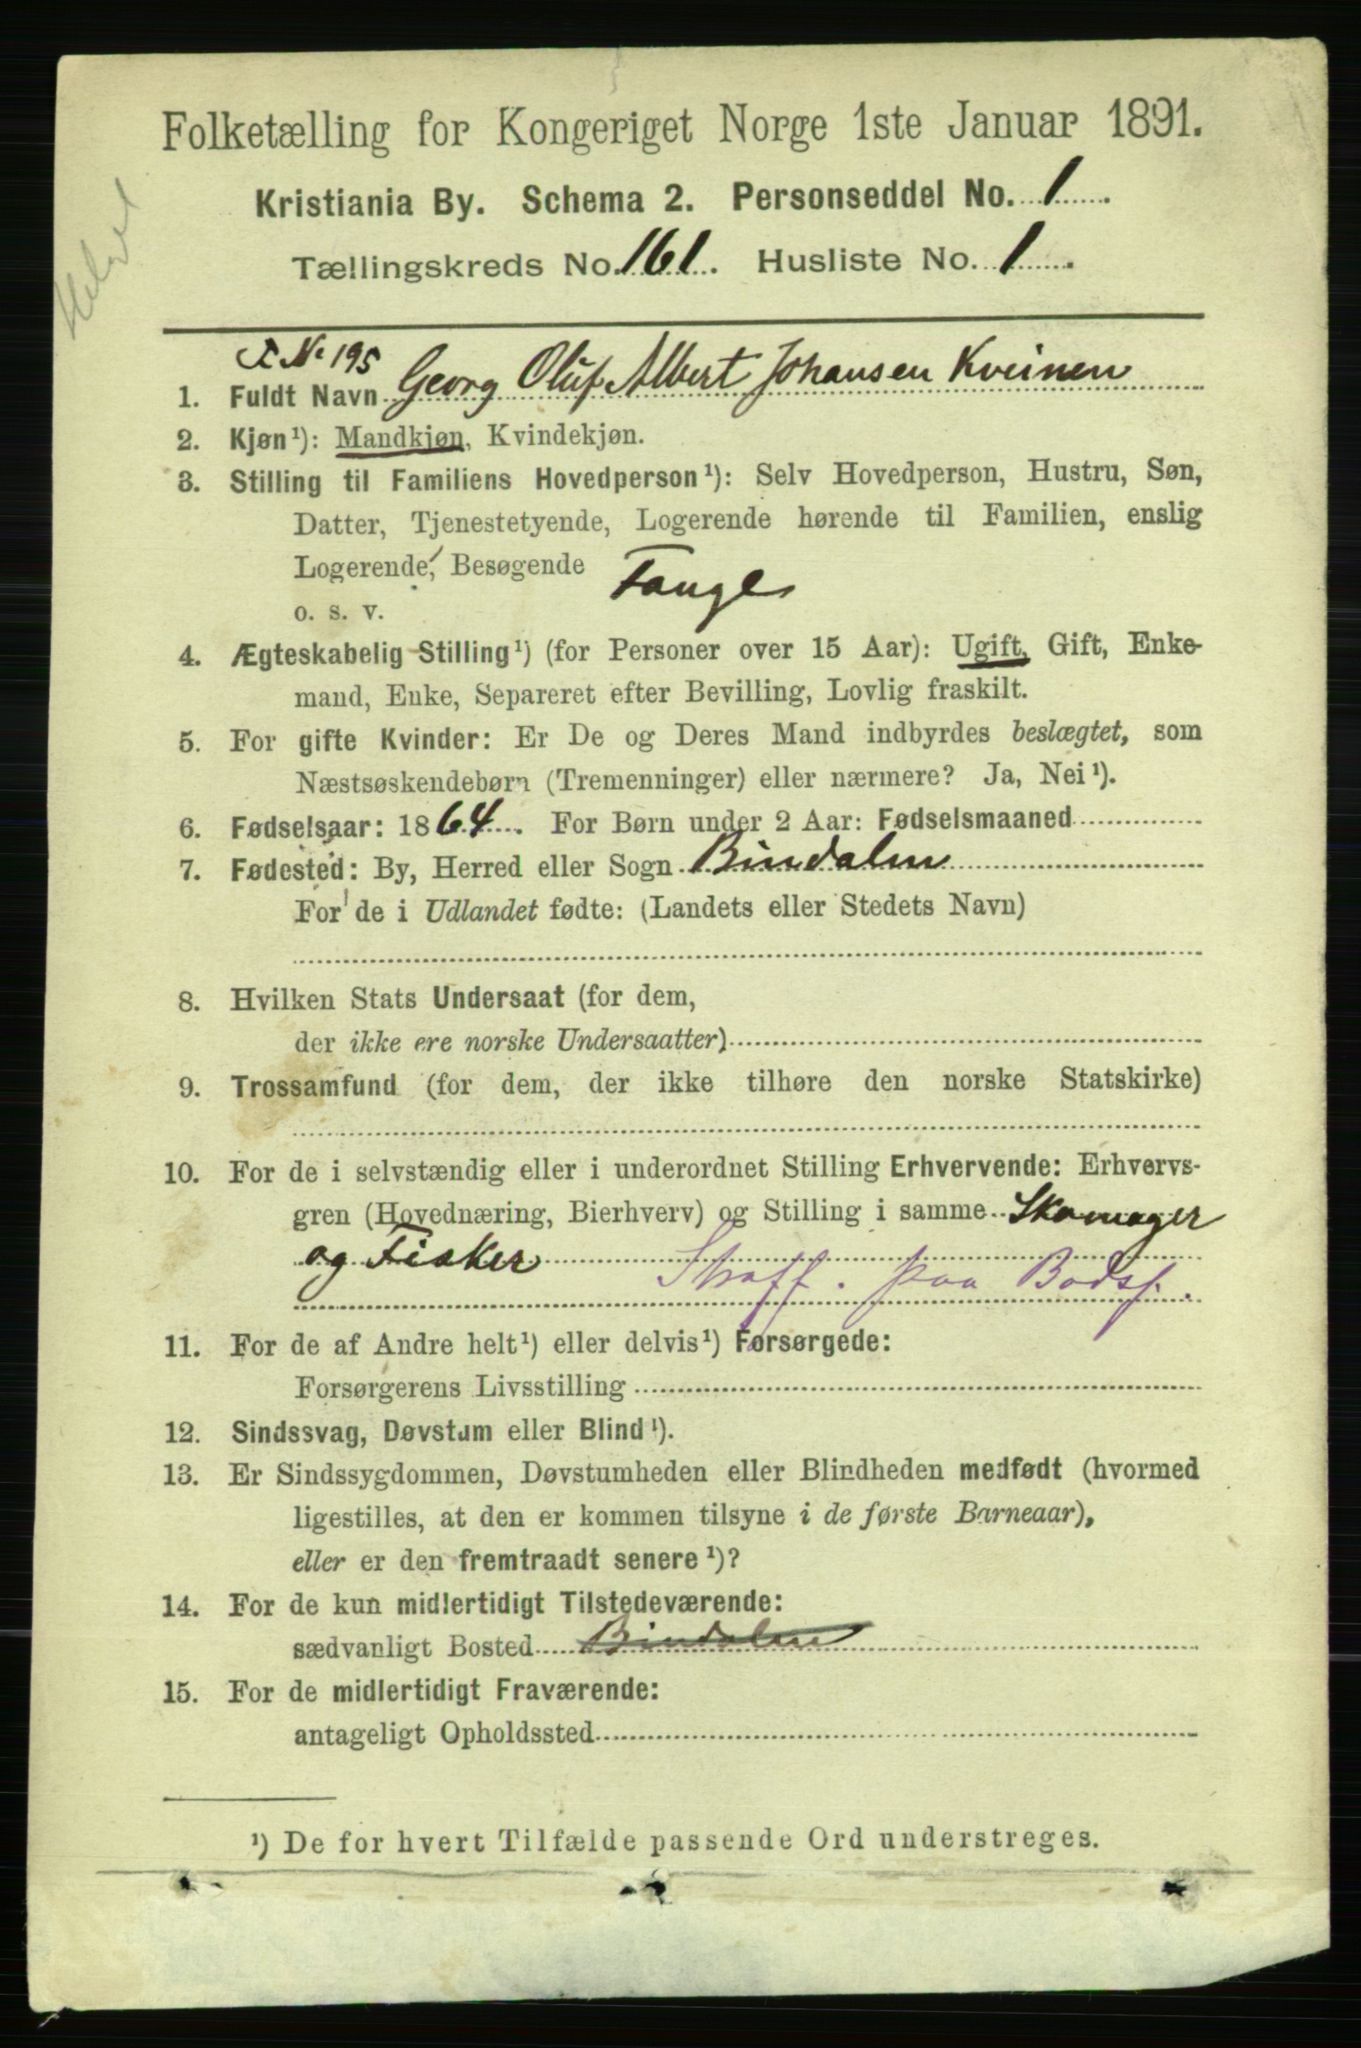 Folketælling for Kongeriget Norge 1ste Januar 1891.
Kristiania By. Schema 2. Personseddel No. 1.
Tællingskreds No. 161. Husliste No. 1.
F. No 195
1. Fuldt Navn Georg Oluf Albert Johansen Kveinen
2. Kjøn¹): Mandkjøn, Kvindekjøn.
3. Stilling til Familiens Hovedperson¹): Selv Hovedperson, Hustru, Søn,
Datter, Tjenestetyende, Logerende hørende til Familien, enslig
Logerende, Besøgende Fange
o. s. v.
4. Ægteskabelig Stilling¹) (for Personer over 15 Aar): Ugift, Gift, Enke-
mand, Enke, Separeret efter Bevilling, Lovlig fraskilt.
5. For gifte Kvinder: Er De og Deres Mand indbyrdes beslægtet, som
Næstsøskendebørn (Tremenninger) eller nærmere? Ja, Nei¹).
6. Fødselsaar: 1864. For Børn under 2 Aar: Fødselsmaaned
7. Fødested: By, Herred eller Sogn Bindalen
For de i Udlandet fødte: (Landets eller Stedets Navn)
8. Hvilken Stats Undersaat (for dem,
der ikke ere norske Undersaatter)
9. Trossamfund (for dem, der ikke tilhøre den norske Statskirke)
10. For de i selvstændig eller i underordnet Stilling Erhvervende: Erhvervs-
gren (Hovednæring, Bierhverv) og Stilling i samme Skomager
og Fisker Straff. paa Bodsf.
11. For de af Andre helt¹) eller delvis¹) Forsørgede:
Forsørgerens Livsstilling
12. Sindssvag, Døvstum eller Blind¹).
13. Er Sindssygdommen, Døvstumheden eller Blindheden medfødt (hvormed
ligestilles, at den er kommen tilsyne i de første Barneaar),
eller er den fremtraadt senere¹)?
14. For de kun midlertidigt Tilstedeværende:
sædvanligt Bosted Bindalen
15. For de midlertidigt Fraværende:
antageligt Opholdssted
¹) De for hvert Tilfælde passende Ord understreges.